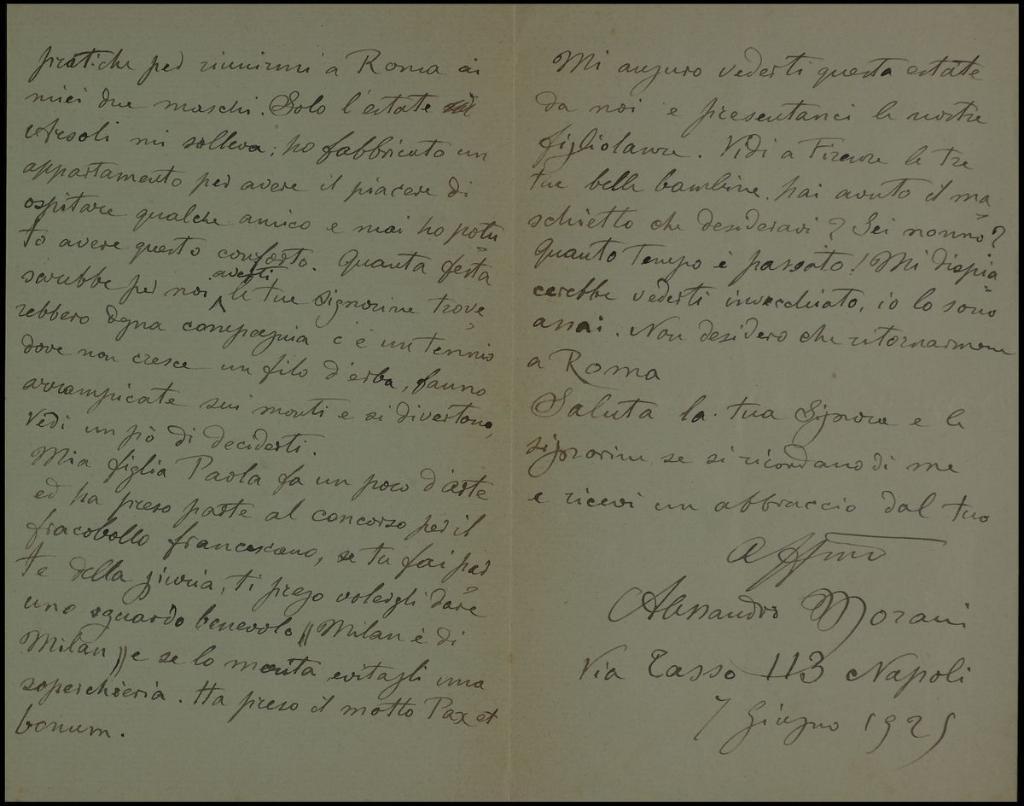 pratiche per riunirmi a Roma ai
miei due maschi. Solo l'estate
Arsoli mi solleva; ho fabbricato un
appartamento per avere il piacere di
ospitare qualche amico e mai ho potu
to avere questo conforto. Quanta festa
sarebbe per noi averti le tue signorine trove
rebbero degna compagnia c'è un tennis
dove non cresce un filo d'erba, fanno
arrampicate sui monti e si divertono,
Vedi un pò di deciderti.
Mia figlia Paola fa un poco d'arte
ed ha preso parte al concorso per il
fracobollo francescano, se tu fai par
te della giuria, ti prego volergli dare
uno sguardo benevolo "Milan è di
Milan" e se lo merita evitagli una
soperchieria. Ha preso il motto Pax et
bonum.
Mi auguro vederti questa estate
da noi e presentarci le nostre
figliolanze. Vidi a Firenze le tre
tue belle bambine, hai avuto il ma
schietto che desideravi? Sei nonno?
Quanto tempo è passato! Mi dispia
cerebbe vederti invecchiato, io lo sono
assai. Non desidero che ritornarmene
a Roma
Saluta la tua Signora e le
signorine se si ricordano di me
e ricevi un abbraccio dal tuo
affmo
Alessandro Morani
Via Tasso 113 Napoli
7 Giugno 1925